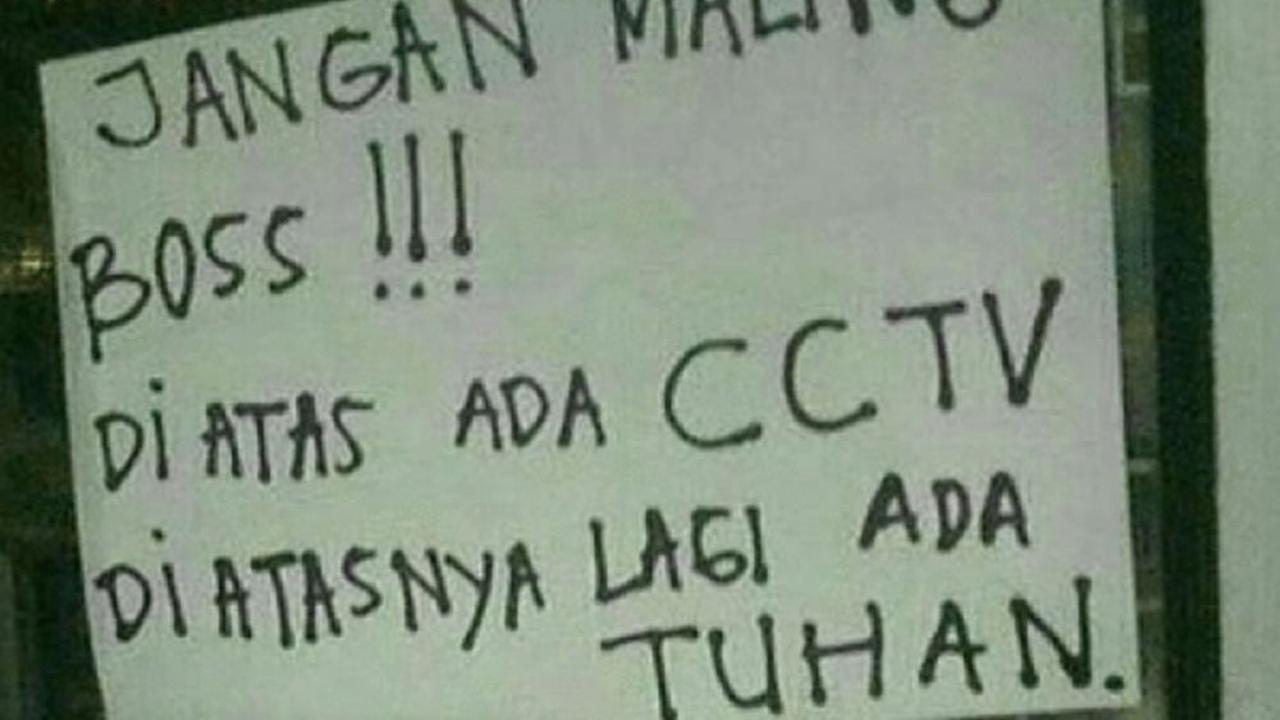 JANGAN MALING
BOSS !!!
Di ATAS ADA CCTV
Di ATASNYA LAGI ADA
TUHAN.